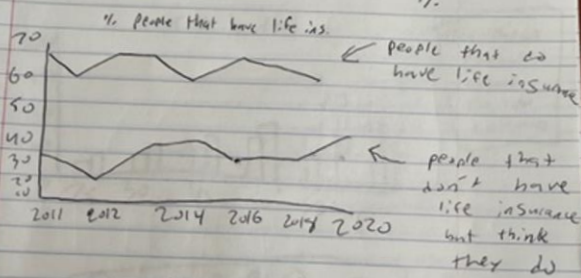 %
% people that have life ins.
70
60
50
40
30
20
10
2011 2012 2014 2016 2018 2020
people that do
have life insurance
people that
don't have
life insurance
but think
they do